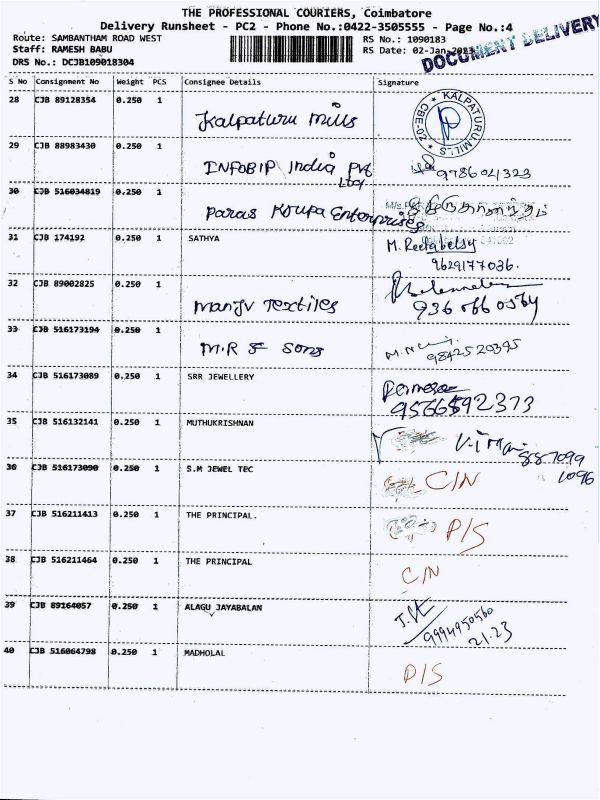 THE PROFESSIONAL COURIERS, Coimbatore
Delivery Runsheet - PC2 - Phone No.:0422-3505555 - Page No.:4
Route: SAMBANTHAM ROAD WEST RS No.: 1090183
Staff: RAMESH BABU RS Date: 02-Jan-2023
DRS No.: DCJB109018304 DOCUMENT DELIVERY
S No Consignment No Weight PCS Consignee Details Signature
28 CJB 89128354 0.250 1 Kalpaturu mills KALPATURU MILLS CBE-02
29 CJB 88983430 0.250 1 INFOBIP India Pvt Ltd, 9786041323
30 CJB 516034819 0.250 1 Paras Koupa Enterprises
31 CJB 174192 0.250 1 SATHYA M. Reetabetsy
9629177036.
32 CJB 89002825 0.250 1 Manju Textiles
33 CJB 516173194 0.250 1 M.R & Sons 9842520395
34 CJB 516173089 0.250 1 SRR JEWELLERY
9566592373
35 CJB 516132141 0.250 1 MUTHUKRISHNAN
36 CJB 516173090 0.250 1 S.M JEWEL TEC C/N
37 CJB 516211413 0.250 1 THE PRINCIPAL. P/S
38 CJB 516211464 0.250 1 THE PRINCIPAL C/N
39 CJB 89164057 0.250 1 ALAGU JAYABALAN 9994950560
21.23
40 CJB 516064798 0.250 1 MADHOLAL P/S